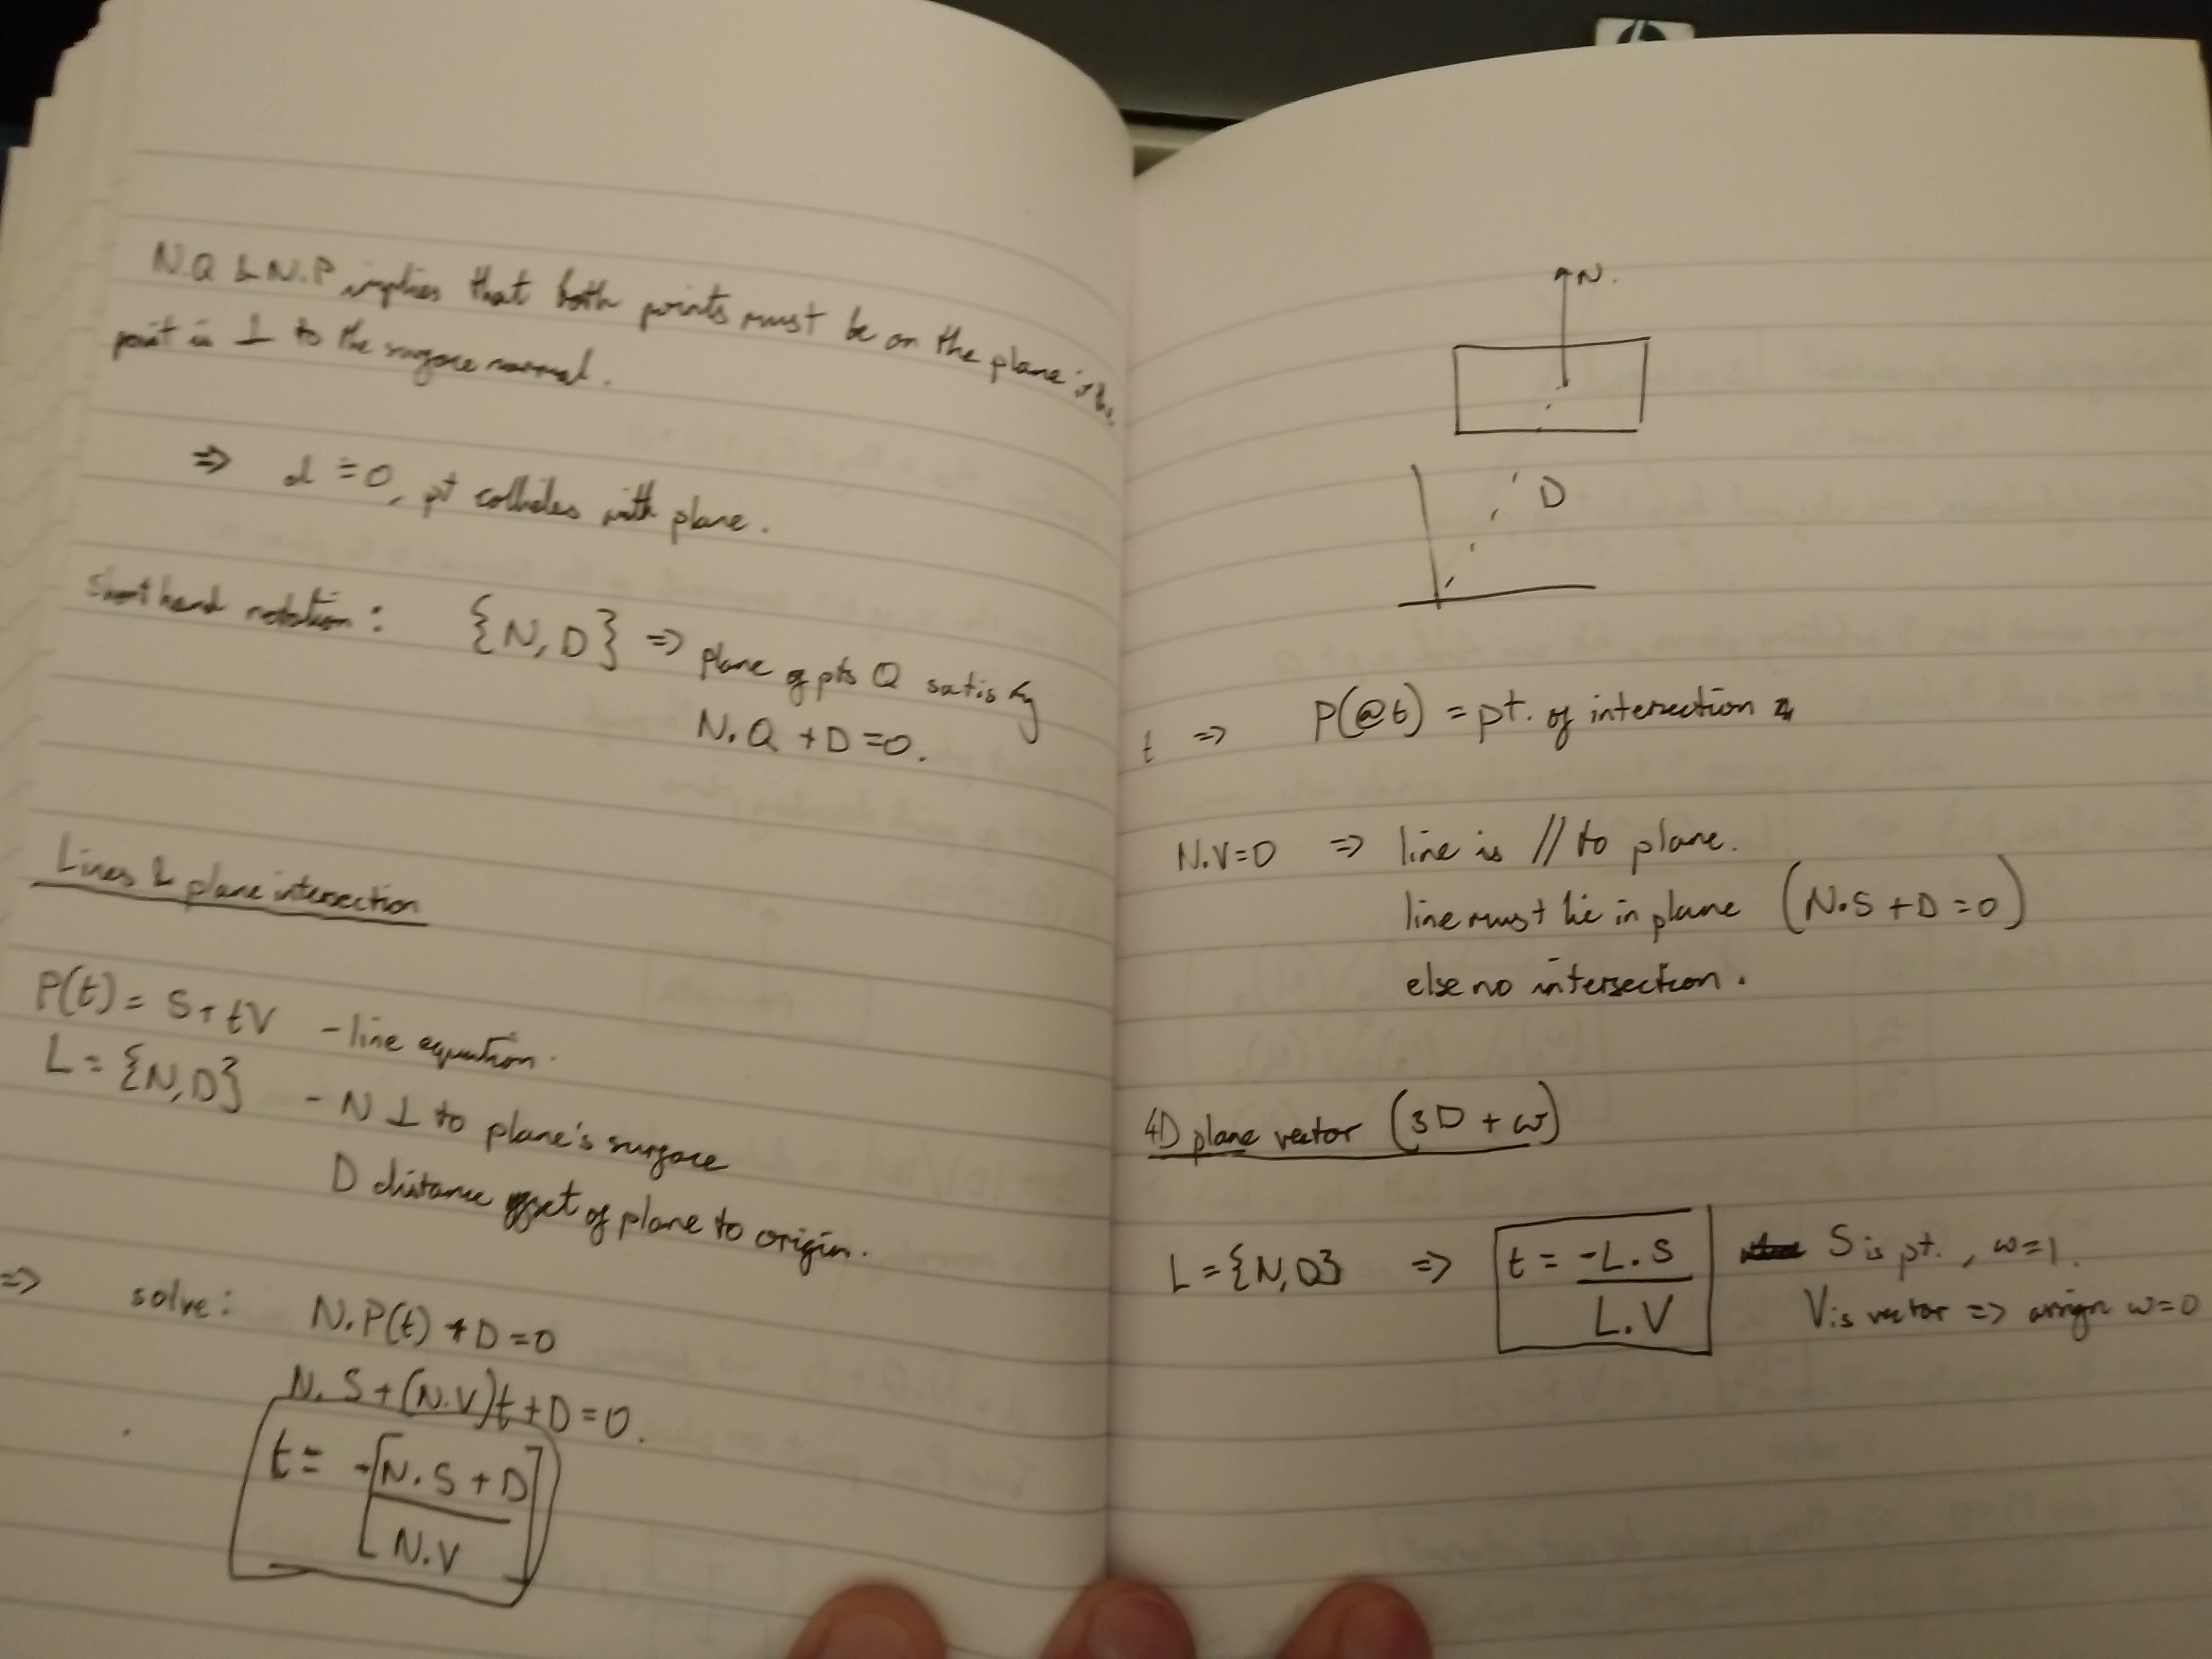 N.Q & N.P implies that both points must be on the plane
point is ⊥ to the surface normal.
⇒ d = 0, pt collides with plane.
Short hand notation: {N, D} ⇒ plane of pts Q satisfy
N.Q + D = 0.
Lines & plane intersection
P(t) = S + tV - line equation.
L = {N, D} - N ⊥ to plane's surface
D distance offset of plane to origin.
⇒ solve: N.P(t) + D = 0
N.S + (N.V)t + D = 0.
t = -[N.S + D
N.V]
N.
D
t ⇒ P(@t) = pt. of intersection
N.V=0 ⇒ line is // to plane.
line must lie in plane (N.S + D = 0)
else no intersection.
4D plane vector (3D + w)
L = {N, D} ⇒ t = -L.S S is pt., w=1.
L.V V is vector ⇒ assign w=0